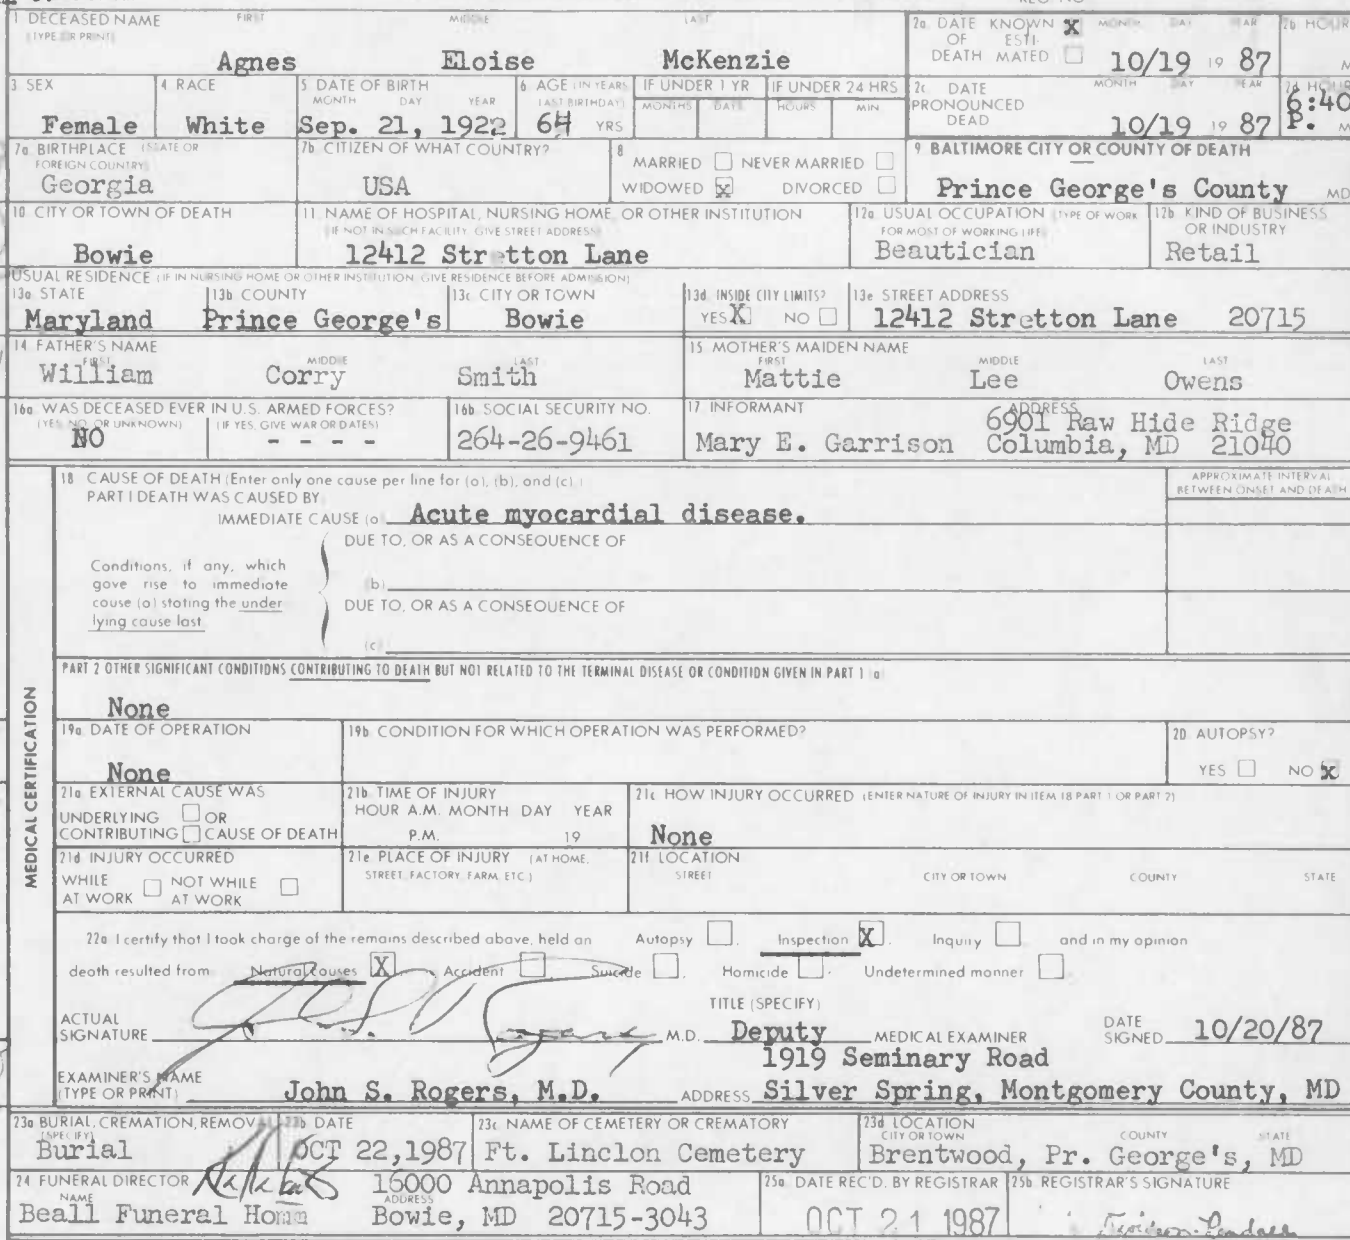 1 DECEASED NAME FIRST MIDDLE LAST
(TYPE OR PRINT)
Agnes Eloise McKenzie
2a. DATE KNOWN X MONTH DAY YEAR 2b HOUR
OF ESTI-
DEATH MATED
10/19 19 87 M
3 SEX 4 RACE 5 DATE OF BIRTH 6 AGE (IN YEARS IF UNDER 1 YR IF UNDER 24 HRS 2c. DATE MONTH DAY YEAR 2d HOUR
MONTH DAY YEAR LAST BIRTHDAY) MONTHS DAYS HOURS MIN PRONOUNCED
DEAD
Female White Sep. 21, 1922 64 YRS 10/19 19 87 6:40 P. M
7a BIRTHPLACE (STATE OR
FOREIGN COUNTRY)
Georgia
7b. CITIZEN OF WHAT COUNTRY?
USA
8
MARRIED NEVER MARRIED
WIDOWED X DIVORCED
9 BALTIMORE CITY OR COUNTY OF DEATH
Prince George's County MD
10 CITY OR TOWN OF DEATH
Bowie
11 NAME OF HOSPITAL, NURSING HOME, OR OTHER INSTITUTION
(IF NOT IN SUCH FACILITY, GIVE STREET ADDRESS)
12412 Stretton Lane
12a USUAL OCCUPATION (TYPE OF WORK
FOR MOST OF WORKING LIFE)
Beautician
12b KIND OF BUSINESS
OR INDUSTRY
Retail
USUAL RESIDENCE (IF IN NURSING HOME OR OTHER INSTITUTION, GIVE RESIDENCE BEFORE ADMISSION)
13a STATE
Maryland
13b COUNTY
Prince George's
13c CITY OR TOWN
Bowie
13d INSIDE CITY LIMITS?
YES X NO
13e STREET ADDRESS
12412 Stretton Lane 20715
14 FATHER'S NAME
FIRST MIDDLE LAST
William Corry Smith
15 MOTHER'S MAIDEN NAME
FIRST MIDDLE LAST
Mattie Lee Owens
16a WAS DECEASED EVER IN U.S. ARMED FORCES?
(YES, NO, OR UNKNOWN) (IF YES, GIVE WAR OR DATES)
NO - - - -
16b SOCIAL SECURITY NO.
264-26-9461
17 INFORMANT ADDRESS
6901 Raw Hide Ridge
Mary E. Garrison Columbia, MD 21040
MEDICAL CERTIFICATION
18 CAUSE OF DEATH (Enter only one cause per line for (a), (b), and (c).)
PART I DEATH WAS CAUSED BY
APPROXIMATE INTERVAL
BETWEEN ONSET AND DEATH
IMMEDIATE CAUSE (a) Acute myocardial disease.
DUE TO, OR AS A CONSEQUENCE OF
Conditions, if any, which
gave rise to immediate
cause (a) stating the under
lying cause last
(b)
DUE TO, OR AS A CONSEQUENCE OF
(c)
PART 2 OTHER SIGNIFICANT CONDITIONS CONTRIBUTING TO DEATH BUT NOT RELATED TO THE TERMINAL DISEASE OR CONDITION GIVEN IN PART 1 (a)
None
19a. DATE OF OPERATION
None
19b. CONDITION FOR WHICH OPERATION WAS PERFORMED?
20 AUTOPSY?
YES NO X
21a EXTERNAL CAUSE WAS
UNDERLYING OR
CONTRIBUTING CAUSE OF DEATH
21b. TIME OF INJURY
HOUR A.M. MONTH DAY YEAR
P.M. 19
21c HOW INJURY OCCURRED (ENTER NATURE OF INJURY IN ITEM 18 PART 1 OR PART 2)
None
21d INJURY OCCURRED
WHILE NOT WHILE
AT WORK AT WORK
21e PLACE OF INJURY (AT HOME,
STREET, FACTORY, FARM, ETC.)
21f LOCATION
STREET CITY OR TOWN COUNTY STATE
22a I certify that I took charge of the remains described above, held an Autopsy Inspection X Inquiry and in my opinion
death resulted from Natural causes X Accident Suicide Homicide Undetermined manner
TITLE (SPECIFY)
ACTUAL
SIGNATURE M.D. Deputy MEDICAL EXAMINER
DATE
SIGNED 10/20/87
1919 Seminary Road
EXAMINER'S NAME
(TYPE OR PRINT) John S. Rogers, M.D. ADDRESS Silver Spring, Montgomery County, MD
23a BURIAL, CREMATION, REMOVAL
(SPECIFY)
Burial
23b DATE
OCT 22,1987
23c NAME OF CEMETERY OR CREMATORY
Ft. Linclon Cemetery
23d LOCATION
CITY OR TOWN COUNTY STATE
Brentwood, Pr. George's, MD
24 FUNERAL DIRECTOR
NAME
Beall Funeral Home
16000 Annapolis Road
ADDRESS
Bowie, MD 20715-3043
25a DATE REC'D. BY REGISTRAR
OCT 21 1987
25b REGISTRAR'S SIGNATURE